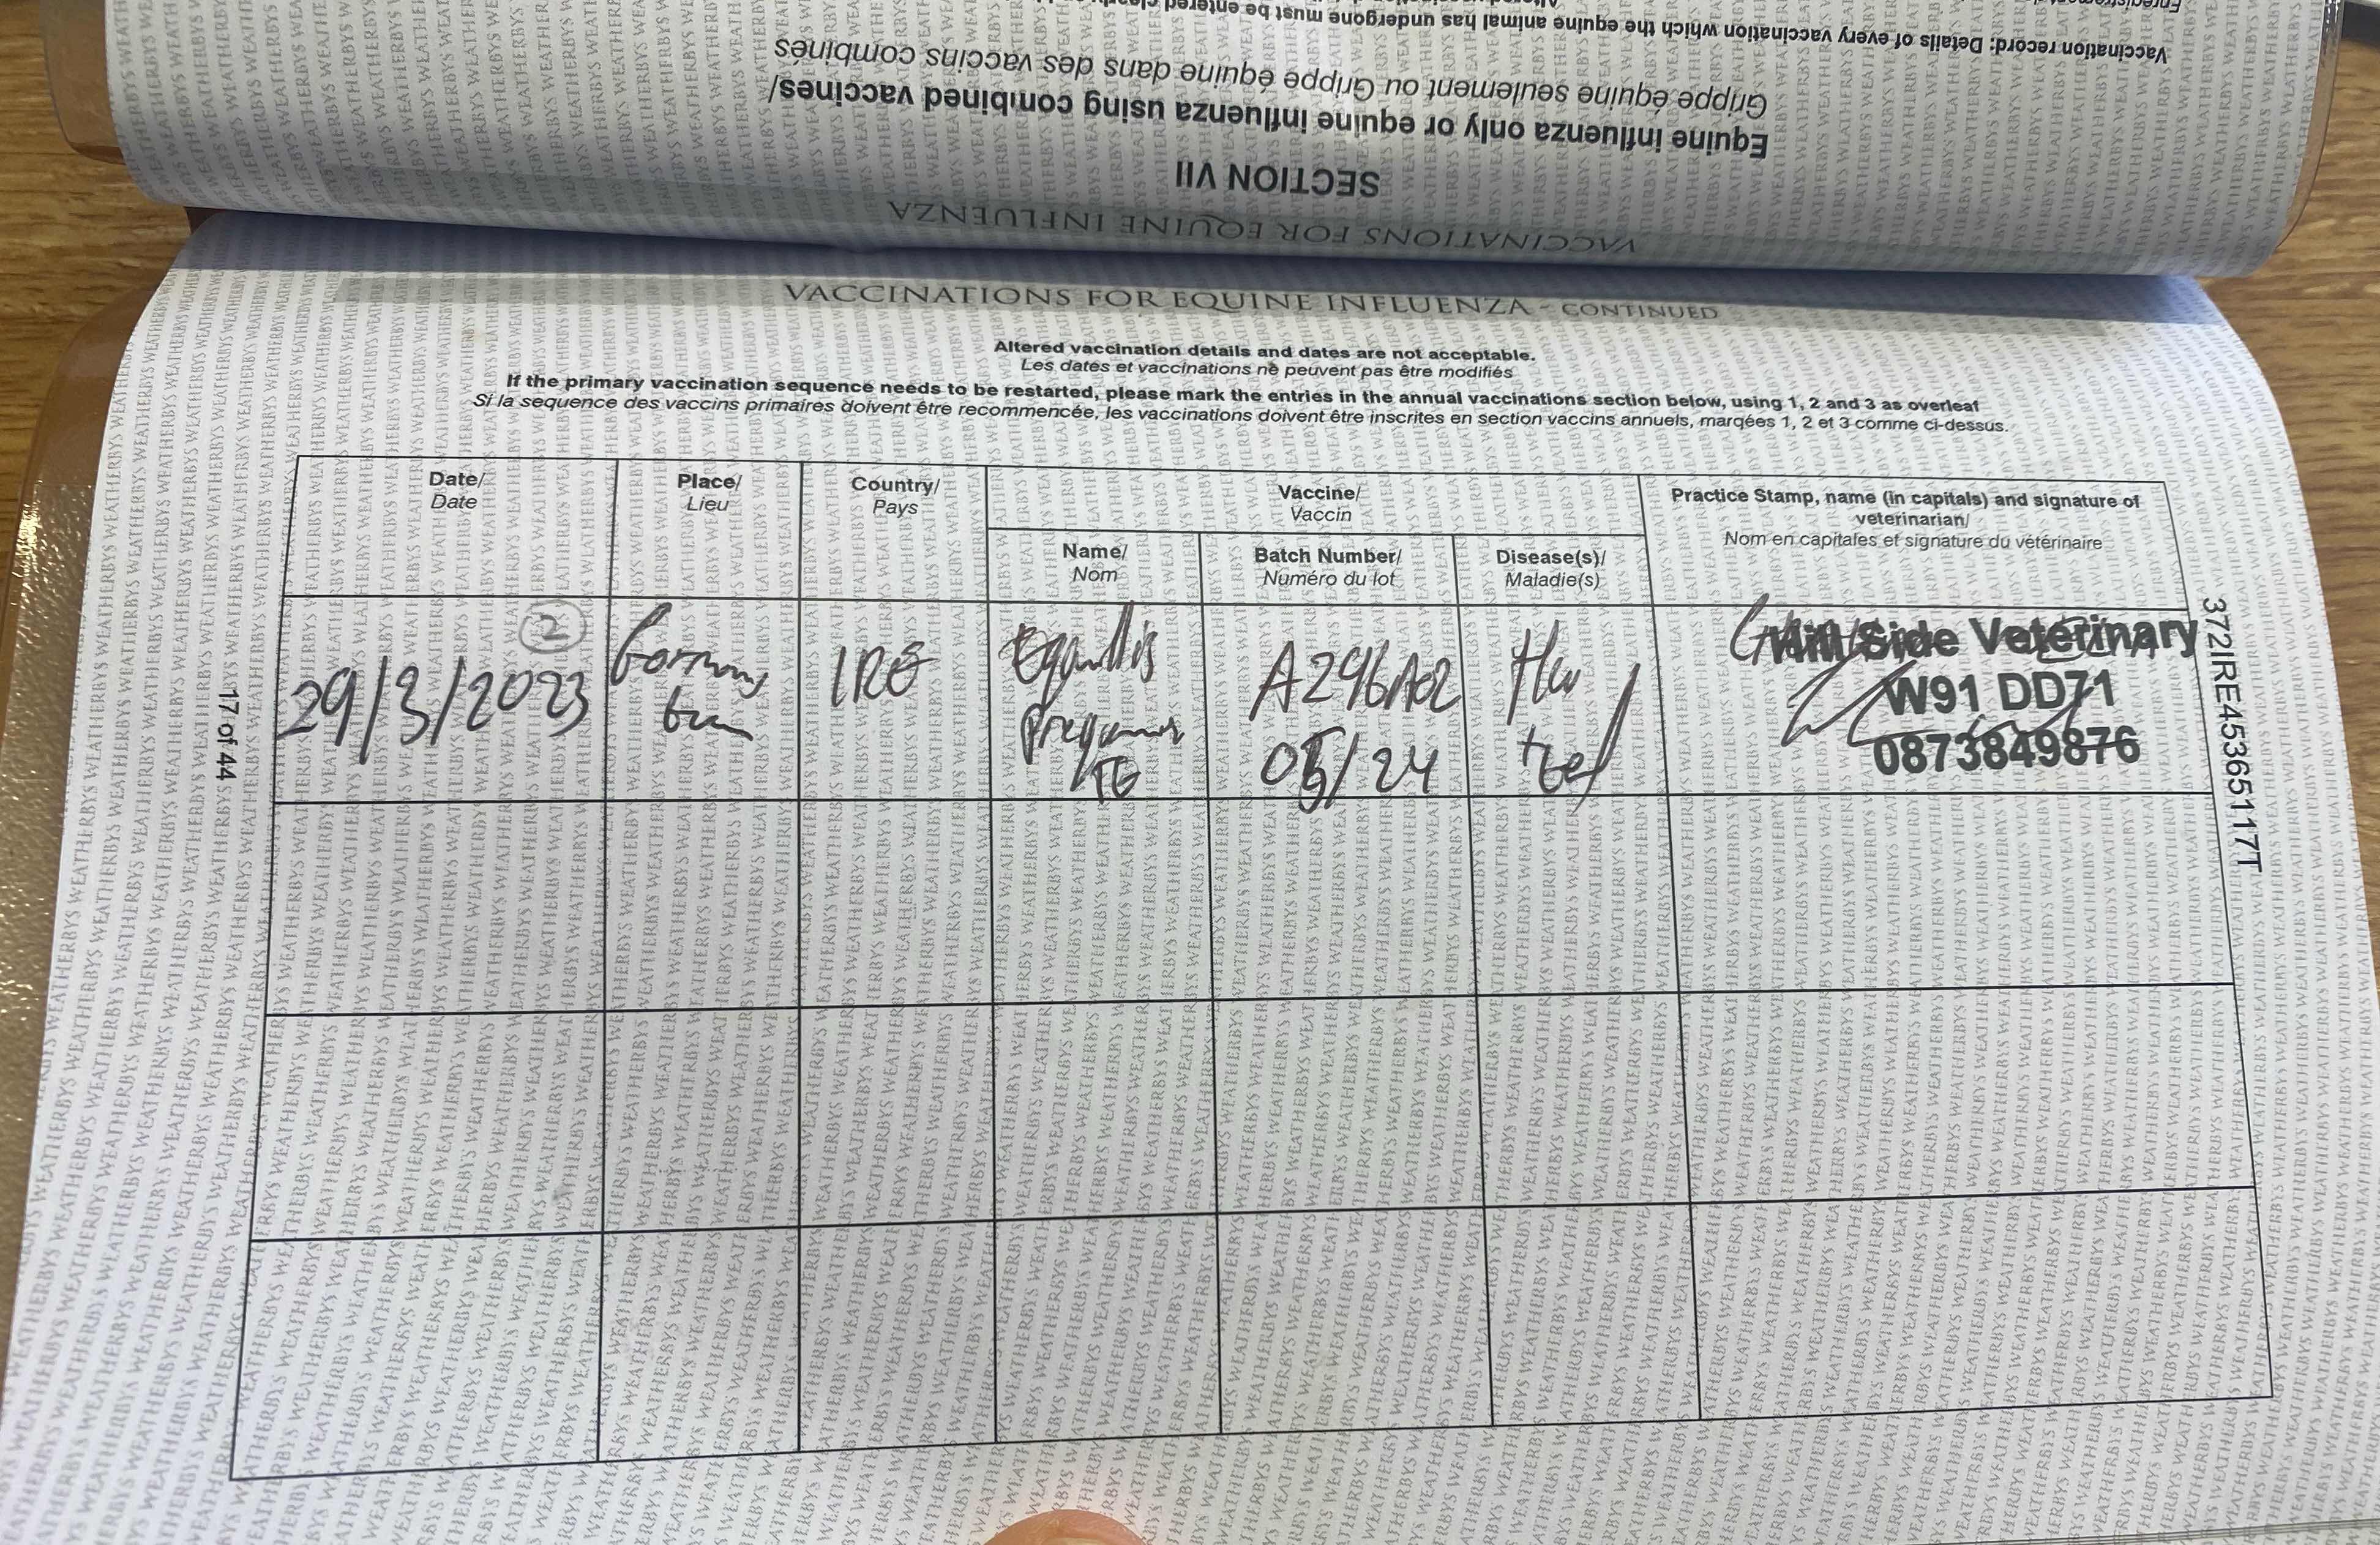 Vaccination record: Details of every vaccination which the equine animal has undergone must be entered
Grippe équine seulement ou Grippe équine dans des vaccins combinés
Equine influenza only or equine influenza using combined vaccines/
SECTION VII
VACCINATIONS FOR EQUINE INFLUENZA
VACCINATIONS FOR EQUINE INFLUENZA - CONTINUED
Altered vaccination details and dates are not acceptable.
Les dates et vaccinations ne peuvent pas être modifiés
If the primary vaccination sequence needs to be restarted, please mark the entries in the annual vaccinations section below, using 1, 2 and 3 as overleaf
Si la sequence des vaccins primaires doivent être recommencée, les vaccinations doivent être inscrites en section vaccins annuels, marqées 1, 2 et 3 comme ci-dessus.
Date/
Date
Place/
Lieu
Country/
Pays
Vaccine/
Vaccin
Name/
Nom
Batch Number/
Numéro du lot
Disease(s)/
Maladie(s)
Practice Stamp, name (in capitals) and signature of
veterinarian/
Nom en capitales et signature du vétérinaire
2
29/3/2023
IRE
TE
A296A02
05/24
Flu
tet
Side Veterinary
W91 DD71
0873849876
372IRE45365117T
17 of 44
WEATHERBYS WEATHERBYS WEATHERBYS